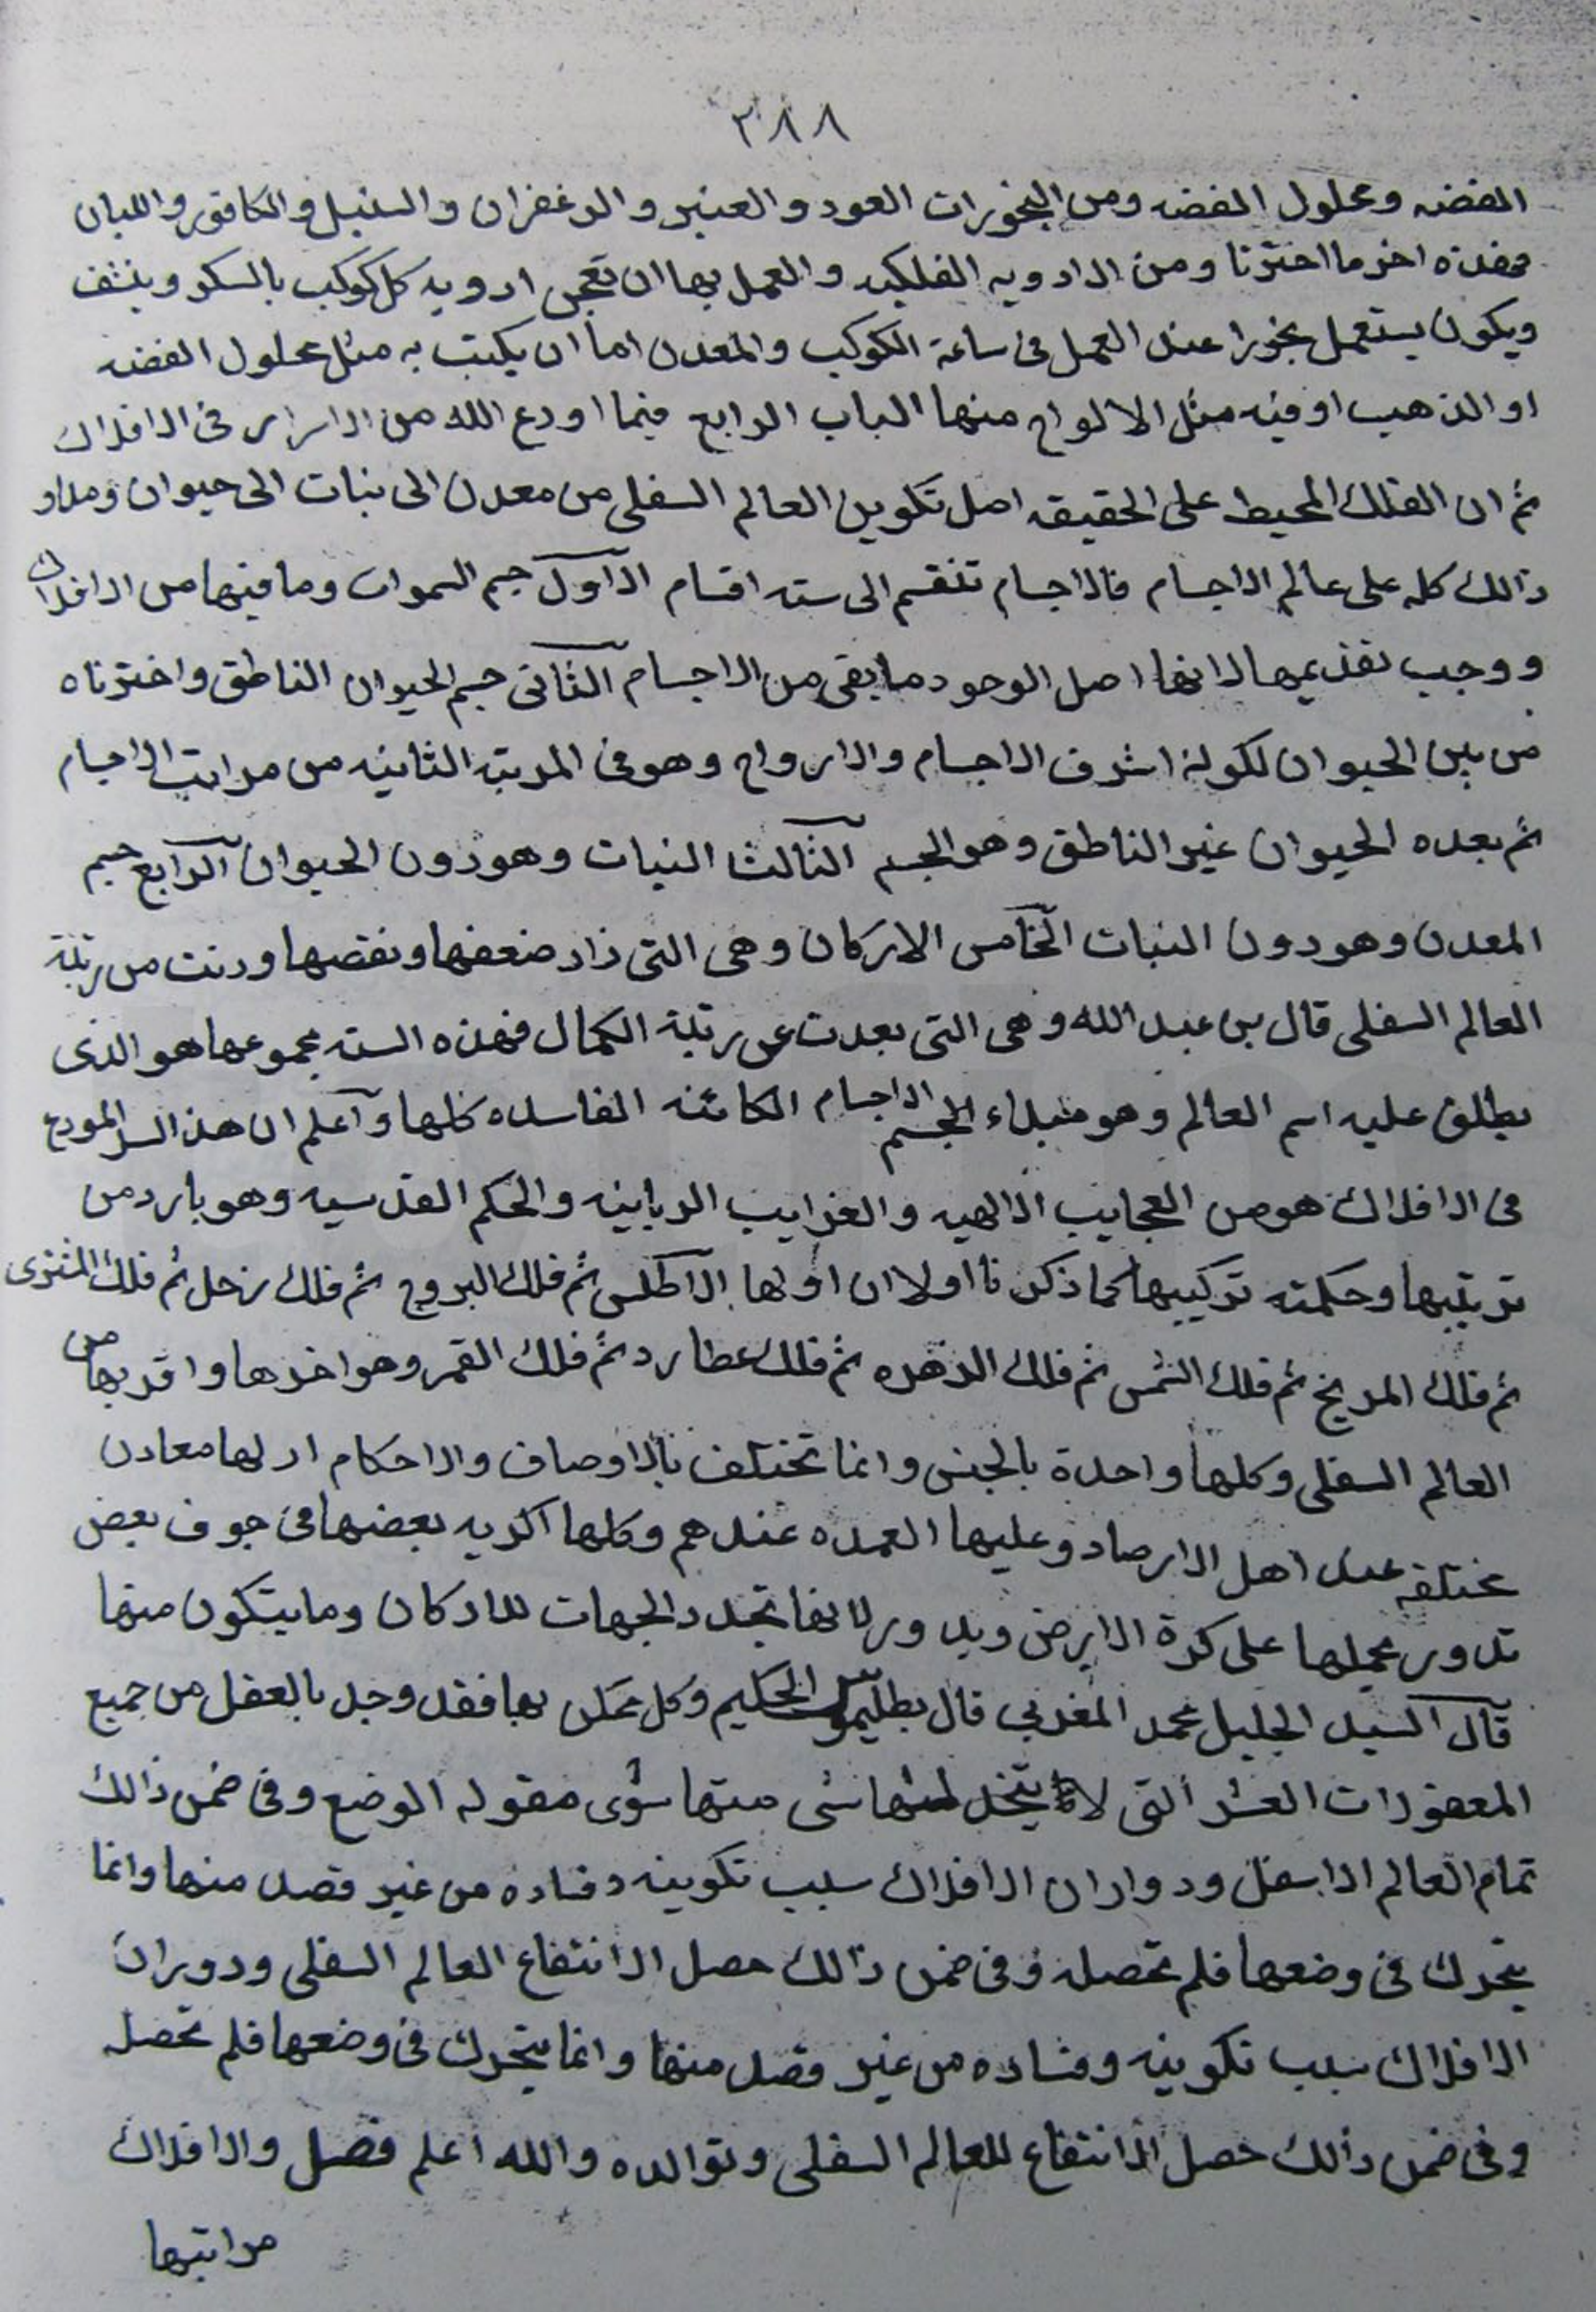 ٣٨٨
الفضه ومحلول الفضه ومن البخورات العود والعنبر والزعفران والسنبل والكافور واللبان
فهذه اخر ما اخترنا ومن الادويه الفلكيه والعمل بها ان تعجن ادويه كل كوكب بالسكر وينشف
ويكون يستعمل بخورا عند العمل فى ساعة الكوكب والمعدن اما ان يكتب به مثل محلول الفضه
او الذهب او فيه مثل الالواح منها الباب الرابع فيما اودع الله من الاسرار فى الافلاك
ثم ان الفلك المحيط على الحقيقه اصل تكوين العالم السفلى من معدن الى نبات الى حيوان ومدار
ذالك كله على عالم الاجسام فالاجسام تنقسم الى سته اقسام الاول جسم السموات وما فيها من الافلاك
ووجب تقديمها لانها اصل الوجود ما بقى من الاجسام الثانى جسم الحيوان الناطق واخترناه
من بين الحيوان لكونه اشرف الاجسام والارواح وهو فى المرتبة الثانيه من مراتب الاجسام
ثم بعده الحيوان غير الناطق وهو الجسم الثالث النبات وهو دون الحيوان الرابع جسم
المعدن وهو دون النبات الخامس الاركان وهى التى زاد ضعفها ونقصها ودنت من رتبة
العالم السفلى قال بن عبد الله وهى التى بعدت عن رتبة الكمال فهذه السته مجموعها هو الذى
يطلق عليه اسم العالم وهو مبداء الجسم الاجسام الكائنه الفاسده كلها واعلم ان هذا السر المودع
فى الافلاك هو من العجايب الالهيه والغرايب الربانيه والحكم القدسيه وهو بارد من
ترتيبها وحكمته تركيبها كما ذكرنا اولا ان اولها الاطلس ثم فلك البروج ثم فلك زحل ثم فلك المشترى
ثم فلك المريخ ثم فلك الشمس ثم فلك الزهره ثم فلك عطارد ثم فلك القمر وهو اخرها واقربها من
العالم السفلى وكلها واحدة بالجنس وانما تختلف بالاوصاف والاحكام اذ لها معادن
مختلفه عند اهل الارصاد وعليها العمده عندهم وكلها اكريه بعضها فى جوف بعض
تدور بجملها على كرة الارض ويدور لانها تجدد الجهات للاركان وما يتكون منها
قال السيد الجليل محمد المغربي قال بطليموس الحكيم وكل ممكن بها فقد وجد بالعقل من جميع
المعقولات العشر التى لا يتخذ لمنها شى منها سوى مقوله الوضع وفى ضمن ذالك
تمام العالم الاسفل ودواران الافلاك سبب تكوينه وفساده من غير قصد منها وانما
يتحرك فى وضعها فلم تحصله وفى ضمن ذالك حصل الانتفاع العالم السفلى ودوران
الافلاك سبب تكوينه وفساده من غير قصد منها وانما يتحرك فى وضعها فلم تحصله
وفى ضمن ذالك حصل الانتفاع للعالم السفلى وتوالده والله اعلم فصل والافلاك
مراتبها